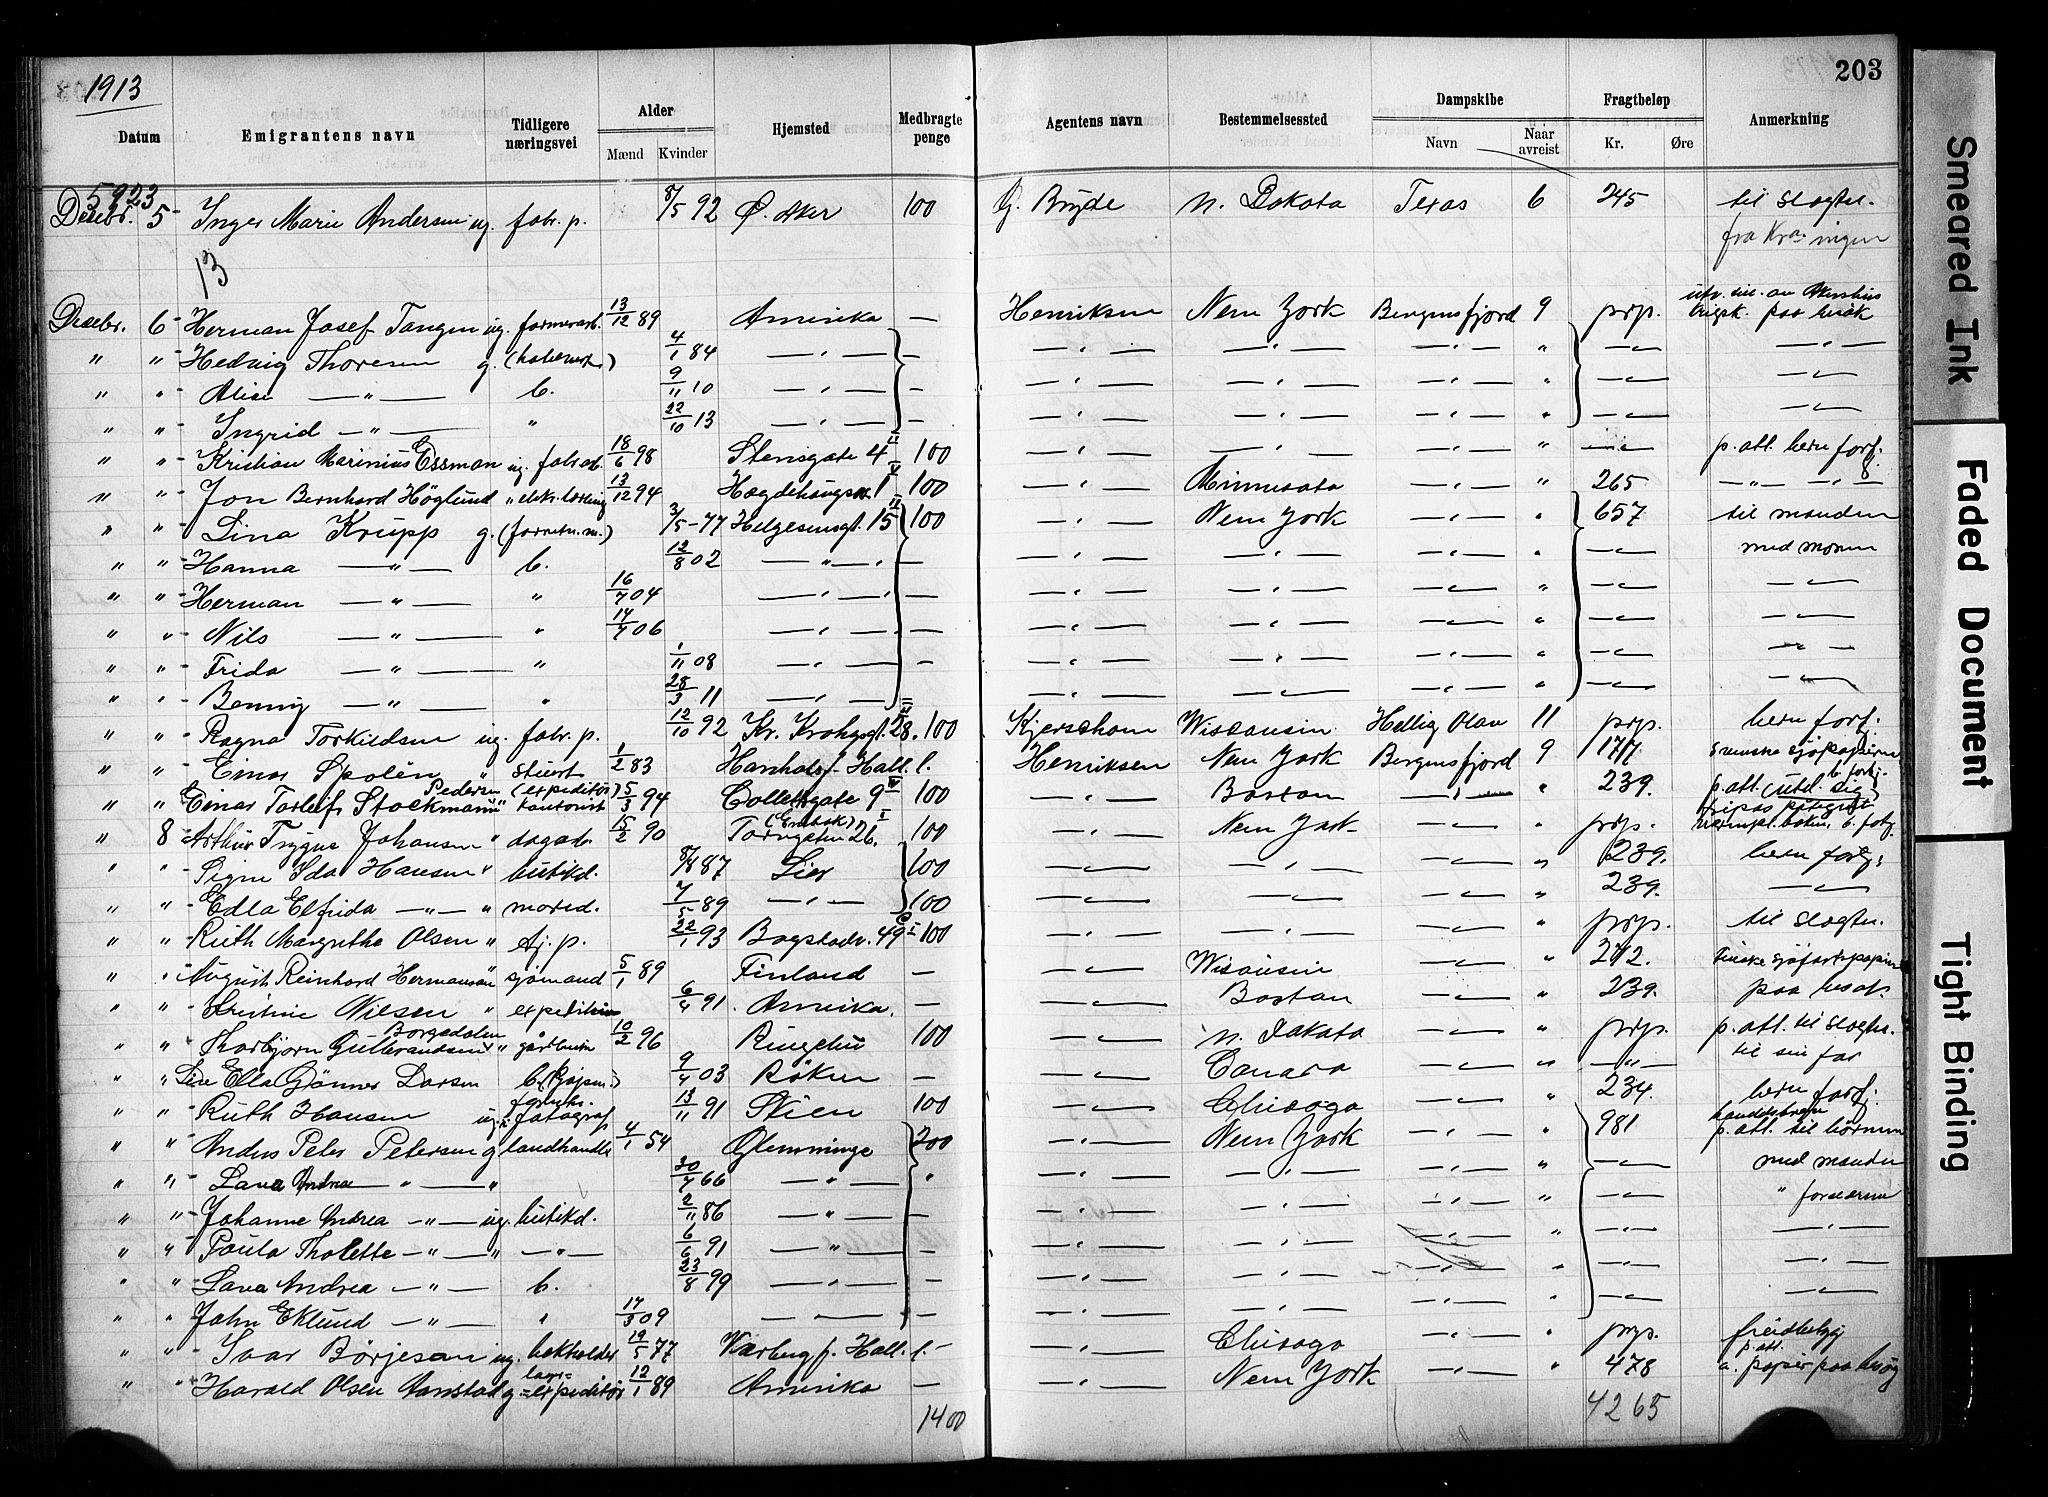 1913
203
Datum Emigrantens navn Tidligere næringsvei Alder Mænd Kvinder Hjemsted Medbragte penge Agentens navn Bestemmelsessted Dampskibe Navn Naar avreist Fragtbeløp Kr. Øre Anmerkning
5923
Desebr. 5 Inger Marie Andersen ug. fabr. p. 8/5 92 Ø. Aker 100 G. Bryde N. Dakota Texas 6 245 til slogtn.
fra Kra. ingen
13
Desebr. 6 Herman Josef Tangen ug. farmerarb. 13/12 89 Amerika — Henriksen New York Bergensfjord 9 prp. paa besøk
" " Hedvig Thoresen g. 4/1 84 — " — — — " — — " — — " — " — " — — " —
" " Alise — " — b. 9/11 10 — " — — — " — — " — — " — " — " — — " —
" " Ingrid — " — " 22/10 13 — " — — — " — — " — — " — " — " — — " —
" " Kristian Marinius Essman ug. fabr.arb. 18/6 98 Stensgate 4 II 100 — " — — " — — " — " — " — p. att. hern forf.
" " Jon Bernhard Höglund " elektr. lærling 13/12 94 Hægdehaugsv. 1 V 100 — " — Minnesota — " — " 265 — " — — " —
" " Lina Krupp g. (forretn. m.) 3/5 - 77 Helgesensgt. 15 II 100 — " — New York — " — " 657 til manden
" " Hanna — " — b. 12/8 02 — " — — — " — — " — — " — " — " — med moren
" " Herman — " — " 16/7 04 — " — — — " — — " — — " — " — " — — " —
" " Nils — " — " 14/7 06 — " — — — " — — " — — " — " — " — — " —
" " Frida — " — " 1/11 08 — " — — — " — — " — — " — " — " — — " —
" " Benny — " — " 28/3 11 — " — — — " — — " — — " — " — " — — " —
" " Ragna Torkildsen ug. fabr. p. 12/10 92 Kr. Krohgsgt. 28. III 100 Kjerschow Wisconsin Hellig Olav 11 prp. hern forf.
" " Einar Spolén " stuert 1/2 83 Harsholsf. Hall. l. Henriksen New York Bergensfjord 9 177. svenske sjøpapirer
Pedersen (expeditør)
" " Einar Torleif Stockmann " kontorist 5/3 94 Colletsgate 9 IV 100 — " — Boston — " — " 239. p. att.
" 8 Arthur Trygve Johansen " dagarb. 15/2 90 Torvgaten 26. I 100 — " — New York — " — " prp.
" " Signe Ida Hansen " butikd. 8/8 87 Lier 100 — " — — " — — " — " 239. hern forf.
" " Edla Elfrida — " — " mored. 7/5 89 — " — 100 — " — — " — — " — " 239. — " —
" " Ruth Margrethe Olsen " tj. p. 22/1 93 Bogstadv. 49 I 100 — " — — " — — " — " prp. til slogtn.
" " August Reinhard Hermanson " sjømand 5/1 89 Finland — — " — Wisconsin — " — " 272. finske sjøfartspapirer
" " Kristine Nilsen " expeditrise 6/4 91. Amerika. — — " — Boston — " — " 239. paa besøk.
Borgedalen
" " Thorbjørn Gulbrandsen " gårdbruk 10/2 96 Ringebu 100 — " — N. Dakota — " — " prp. p. att. til slogtn.
" " Lise Ella Gjönnes Larsen b. 9/4 03 Röken — — " — Canada — " — " — " — til sin far
" " Ruth Hansen ug. fotograf 13/11 91 Skien 100 — " — Chicago — " — " 234. hern forf.
" " Anders Peter Petersen g landhandler 4/1 54 Glemminge 200 — " — New York — " — " 981 p. att. til børnene
" " Lava Andrea — " — " 30/7 66 — " — " — " — — " — — " — " — " — med manden
" " Johanne Andrea — " — ug. butikd. 2/11 86 — " — — — " — — " — — " — " — " — " foreldrene
" " Paula Tholette — " — " — " — 6/6 91 — " — — — " — — " — — " — " — " — — " —
" " Lava Andrea — " — b. 23/8 99 — " — — — " — — " — — " — " — " — — " —
" " John Eklund — " — " 17/3 09 — " — — — " — — " — — " — " — " — — " —
" " Ivar Börjeson ug. bokholder 19/5 77 Warberg f. Hall. l. — — " — Chicago — " — " prp.
" " Harald Olsen Aanstad g = expeditør 12/1 89 Amerika — — " — New York — " — " 478 a. papir paa besøg
1400 4265
Smeared Ink
Faded Document
Tight Binding